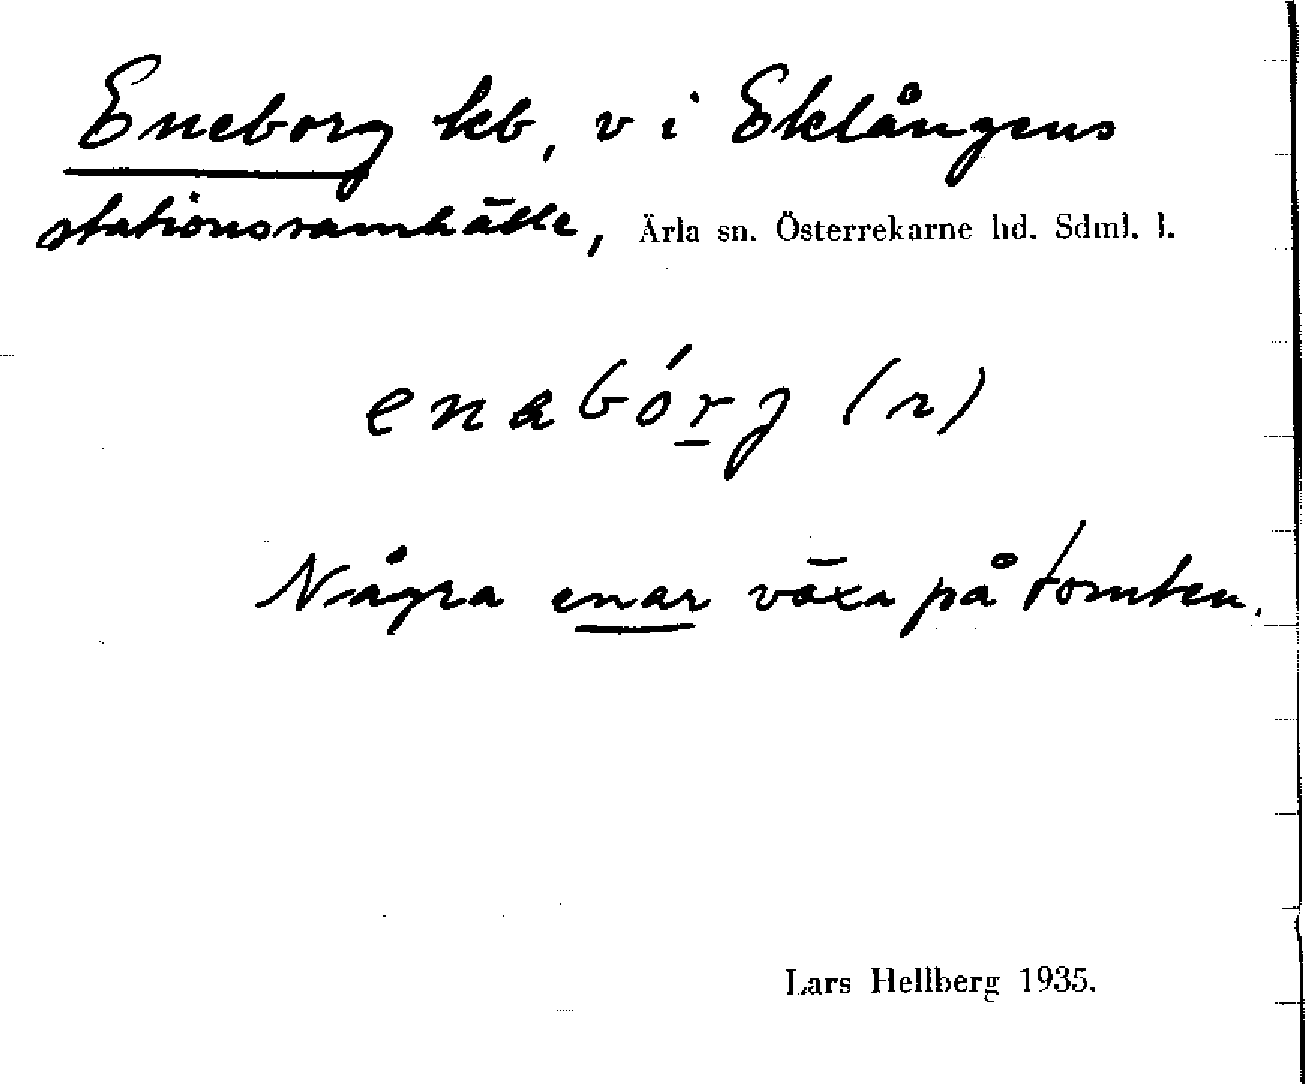 Eneborg kb, v i Eklångens
stationssamhälle, Ärla sn. Österrekarne hd. Sdml. l.
enabórg (r)
Några enar växa på tomten.
Lars Hellberg 1935.